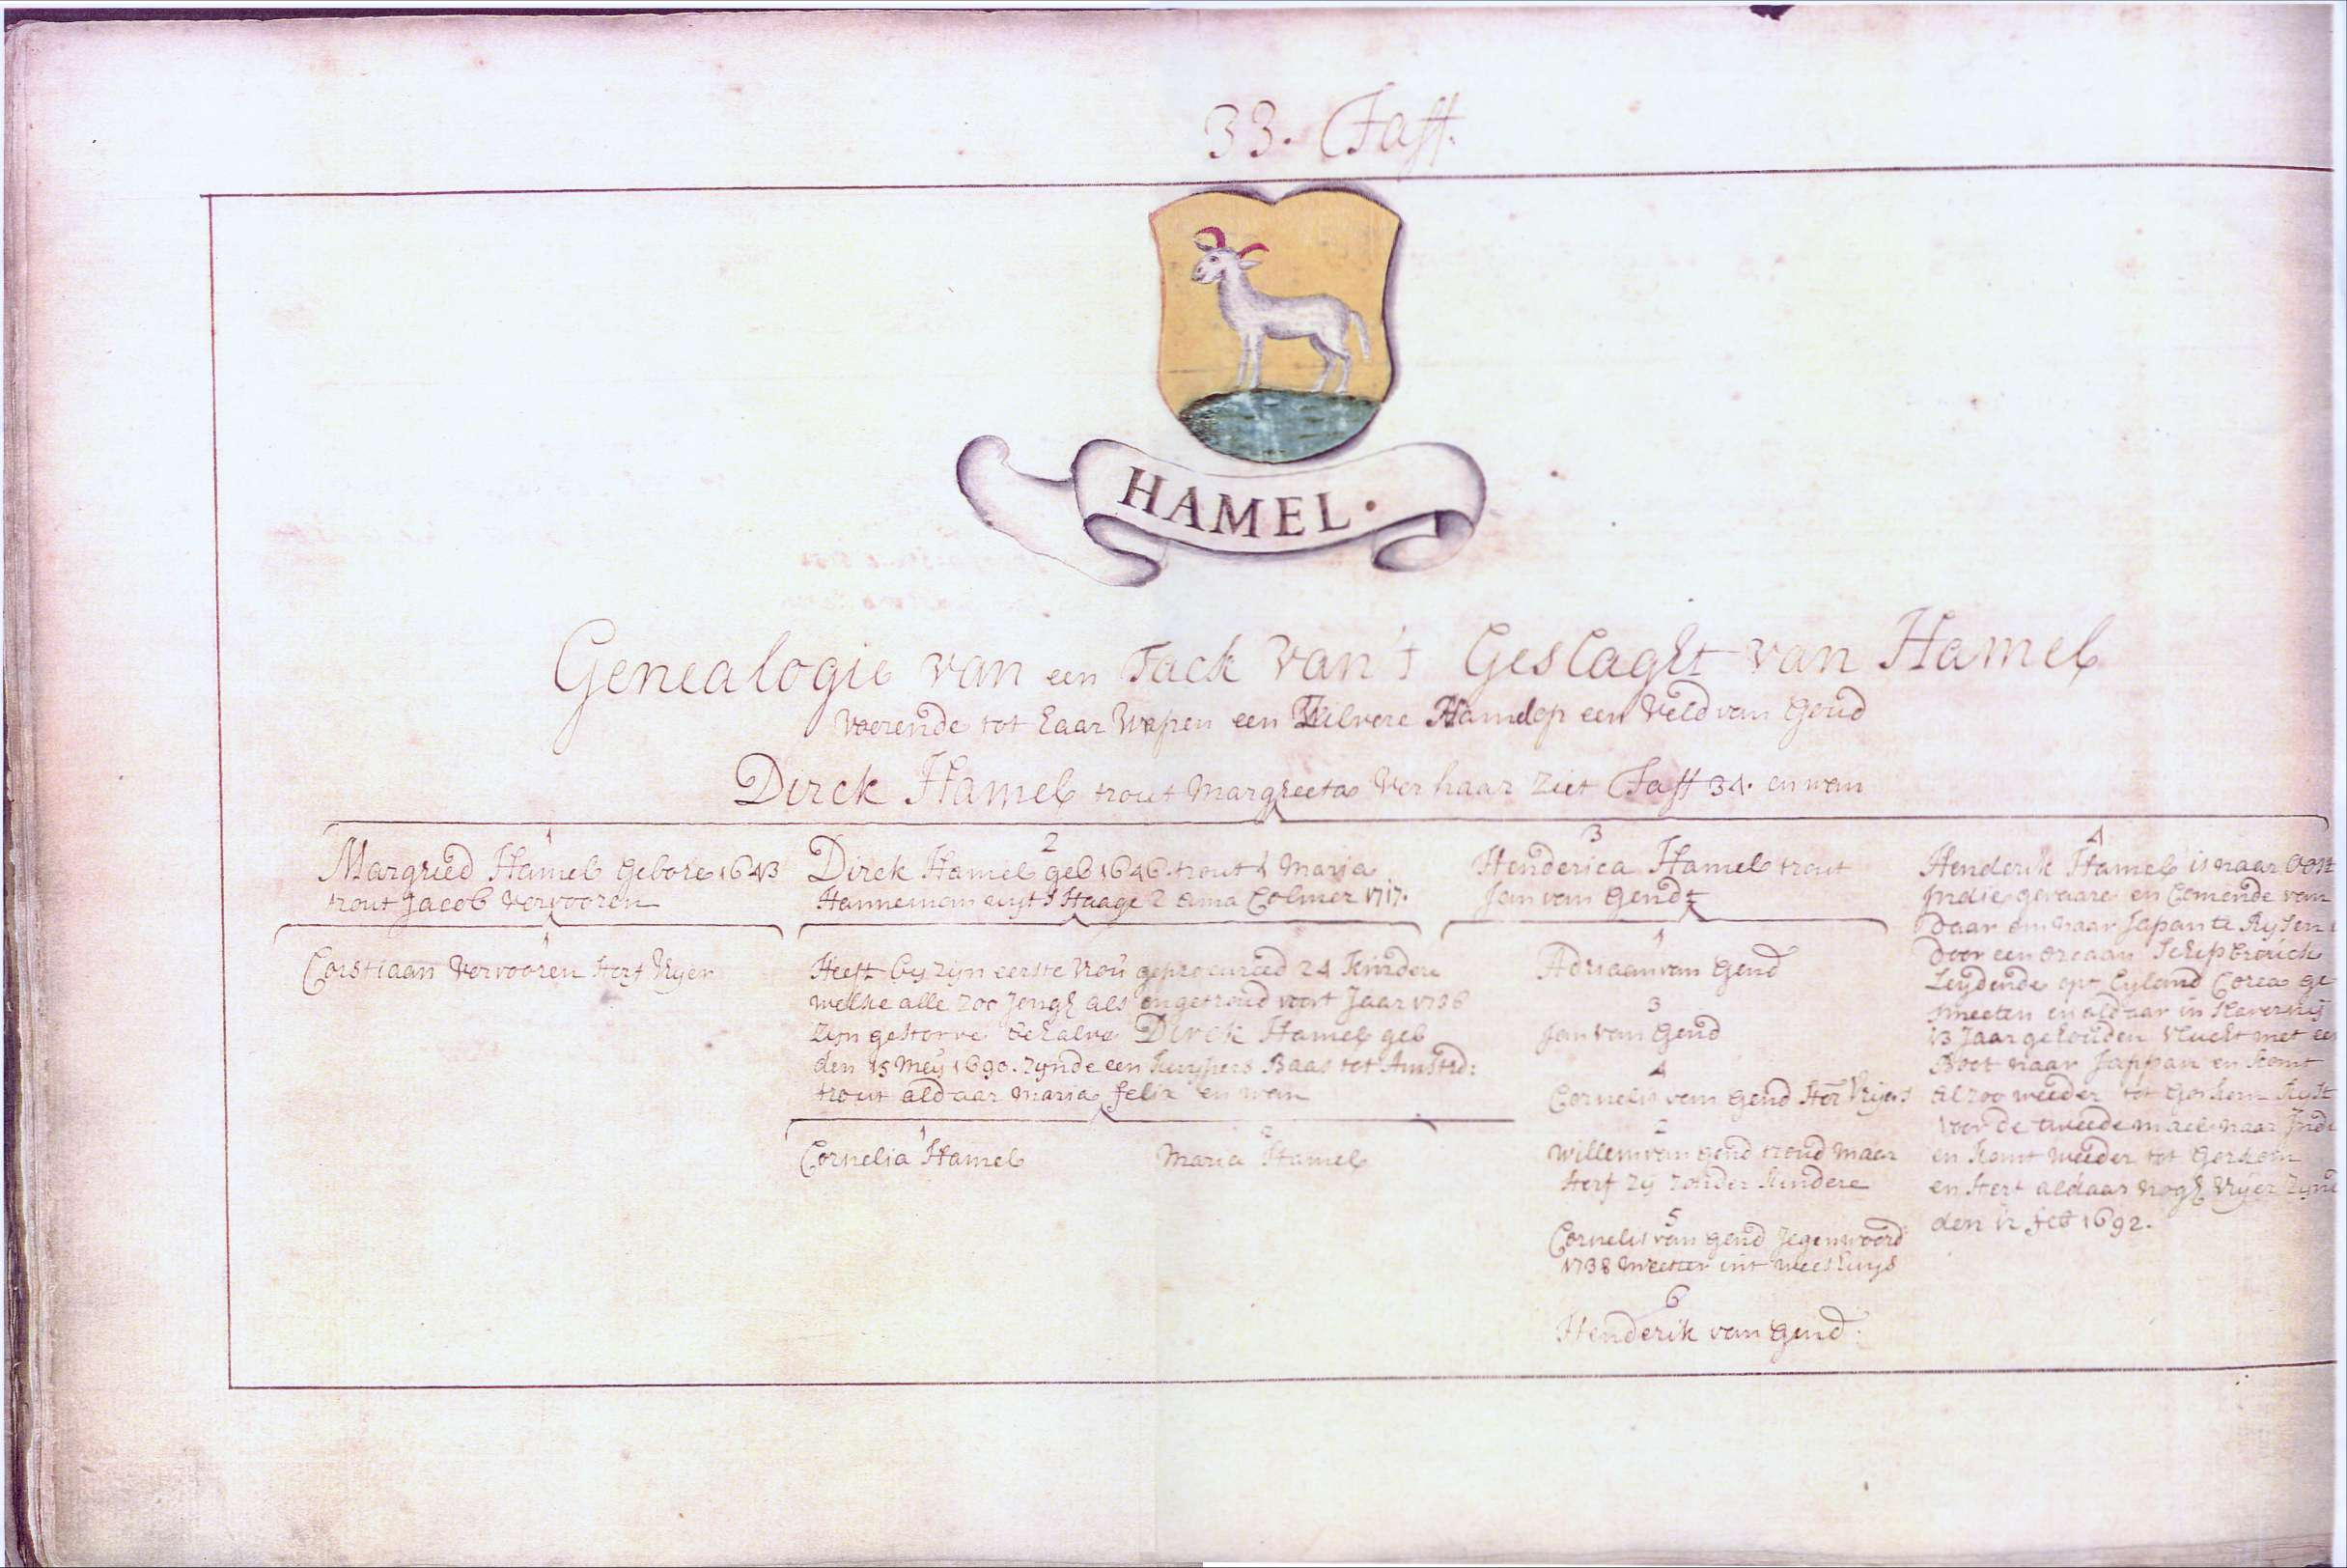 33. Taff.
HAMEL.
Genealogie van een Tack van't Geslaght van Hamel
Voerende tot haar Wapen een Zilvere Hamel op een Veld van Goud
Dirck Hamel trout Margreeta Verhaar Ziet Taff 34. en wan
1
Margried Hamel Gebore 1643
trout Jacob Vervooren
1
Corstiaan Vervooren sterf Vryer
2
Dirck Hamel geb 1646 trout 1 Maria
Hanneman uyt s Haage 2 Anna Colmer 1717.
Heeft by zijn eerste Vrou geprocureed 24 kindere
welke alle zoo Jongh als ongetroud voort Jaar 1736
zijn gestorve behalve Dirck Hamel geb
den 15 Mey 1690. zynde een kuypers Baas tot Amstrd:
trout aldaar Maria felix en wan
1
Cornelia Hamel
2
Maria Hamel
3
Henderica Hamel trout
Jan van Gendt
1
Adriaan van Gend
3
Jan van Gend
4
Cornelis van Gend ster Vryers
2
Willem van Gend troud maar
sterf zy zonder kindere
5
Cornelis van Gend Jegenwoord
1738 Meester int weeshuys
6
Henderik van Gend:
4
Henderik Hamel is naar Oost
Jndie gevaare en Comende van
Daar om naar Japan te Rysen
Door een orcaan Schipbreuck
Leydende opt Eyland Corea ge
smeeten en aldaar in slavernij
13 Jaar gehouden Vlucht met ee
Boot naar Jappan en komt
alzoo weeder tot Gorkom Ryst
voor de tweede mael naar Jndi
en komt weeder tot Gorkom
en stert aldaar nogh Vryer zynd
den 12 feb 1692.